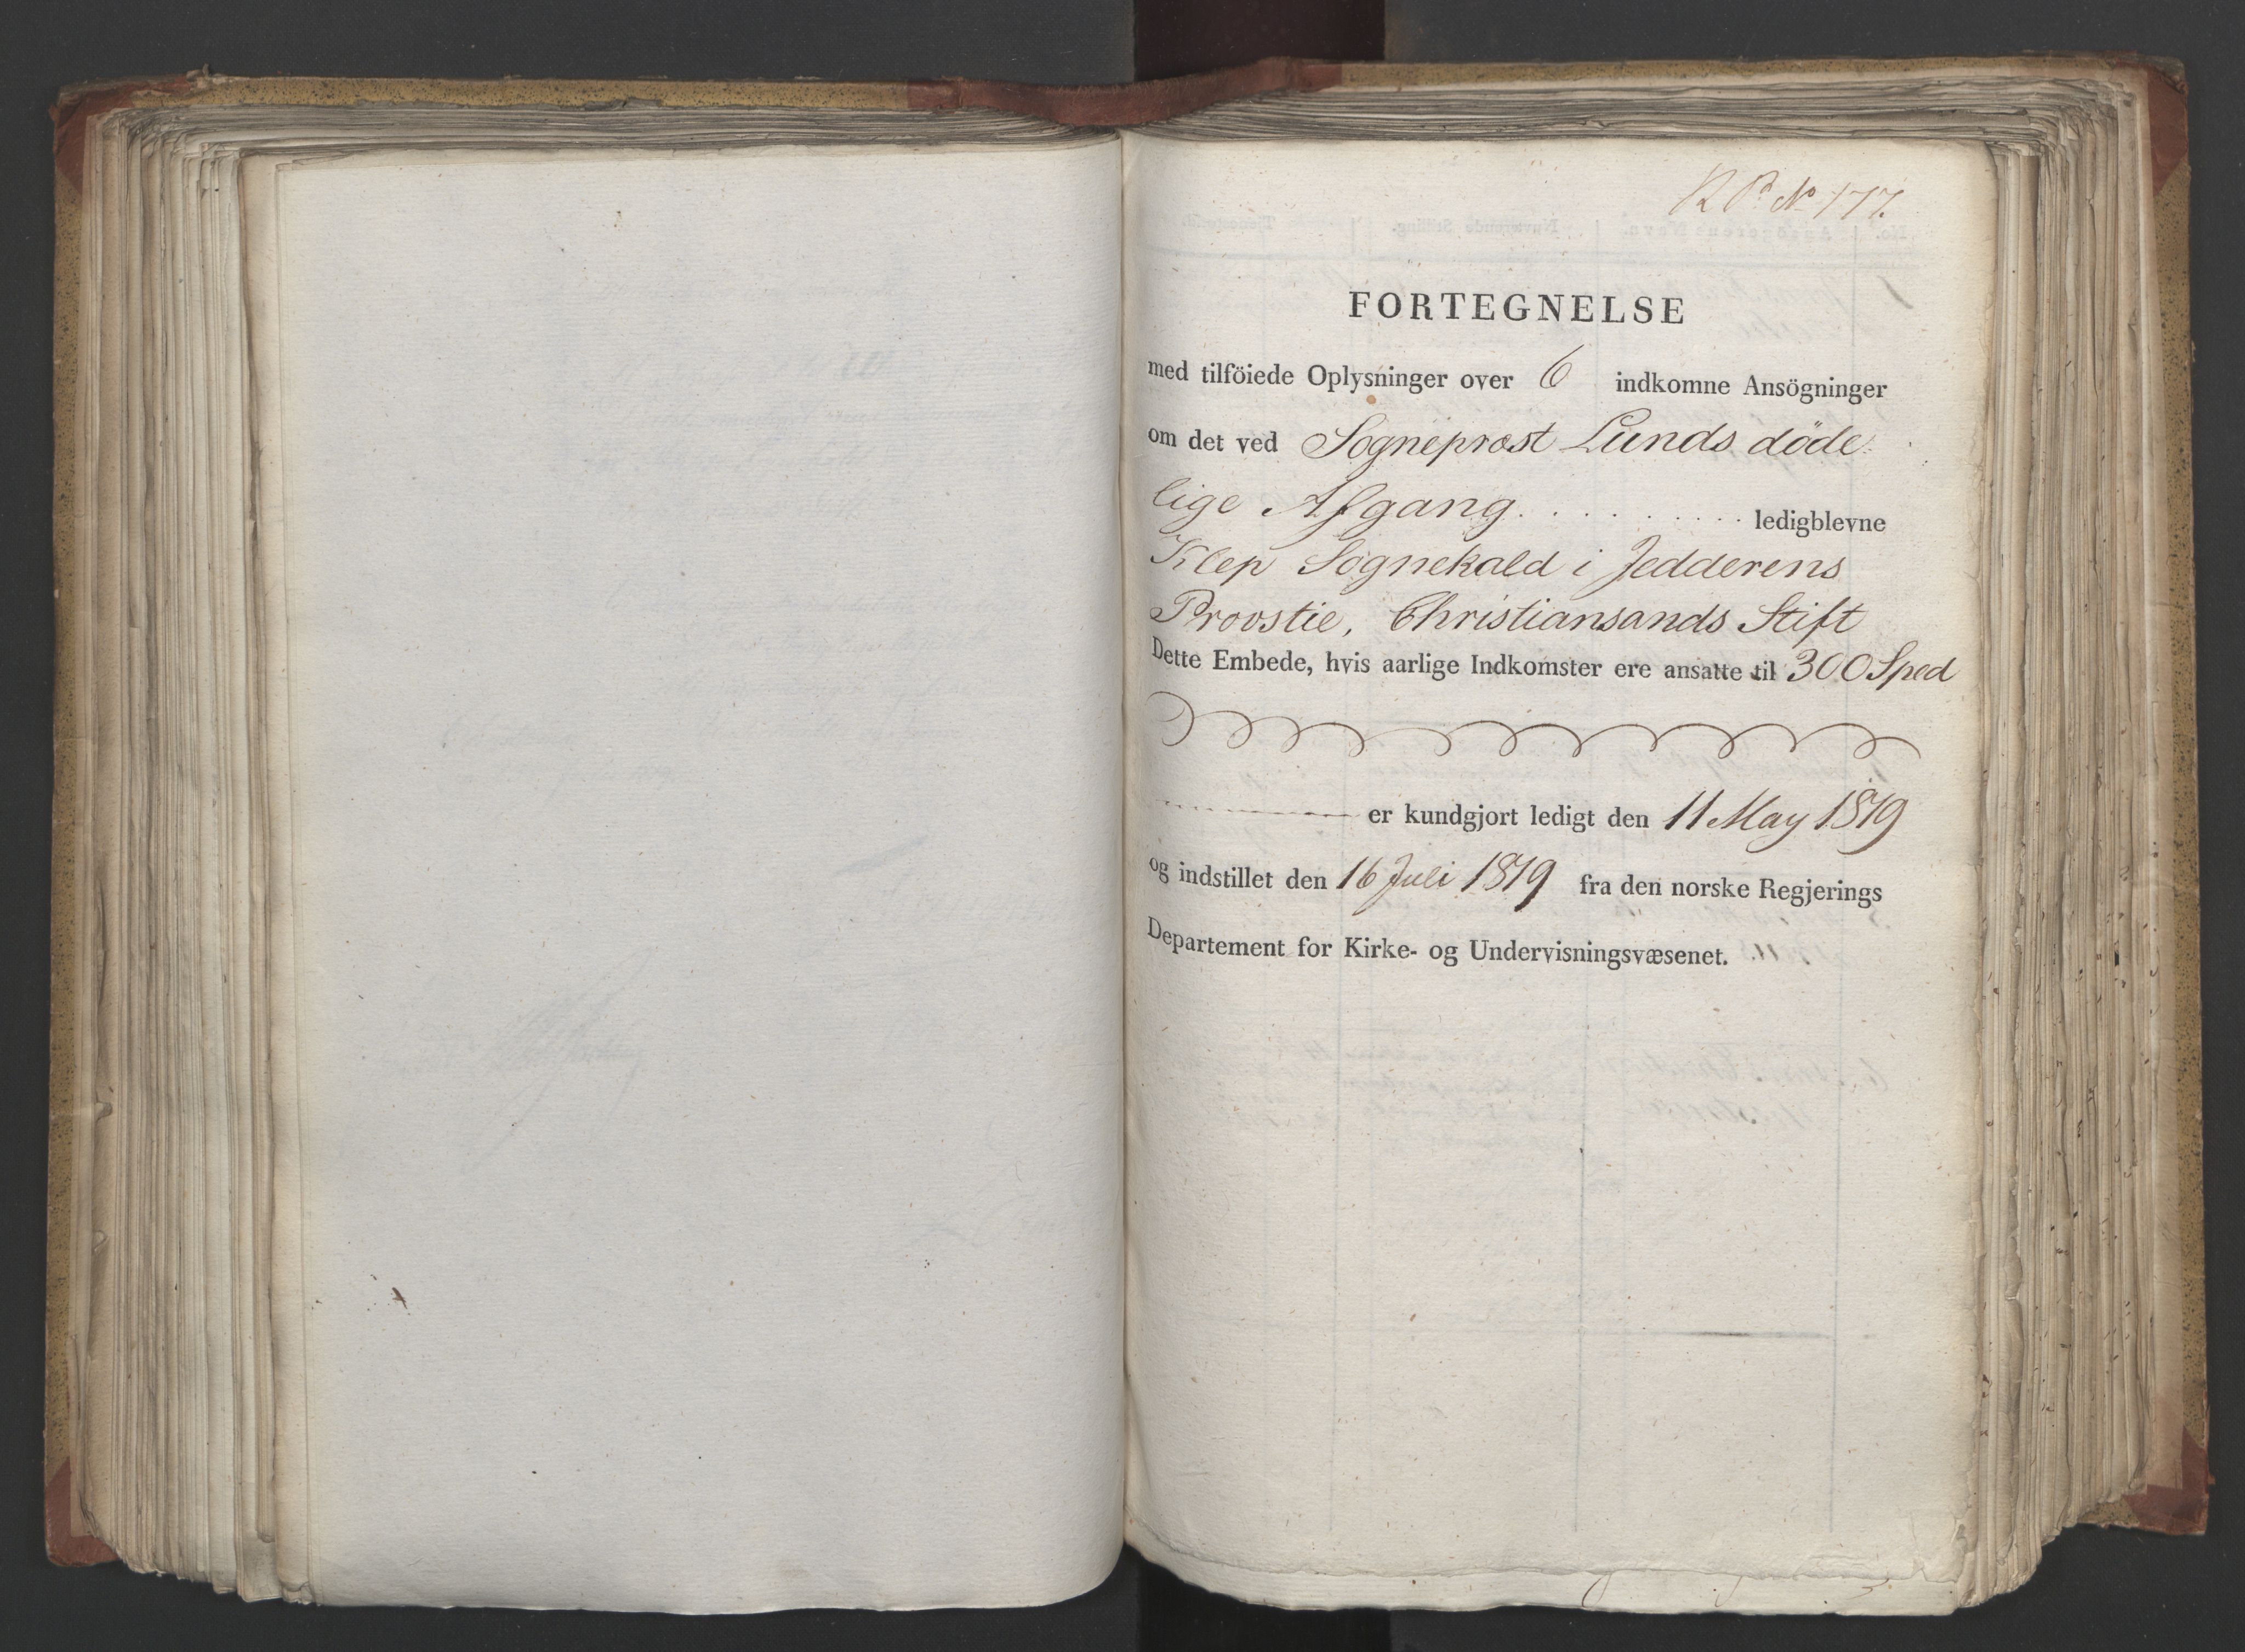 R P. No 177.
FORTEGNELSE
med tilföiede Oplysninger over 6 indkomne Ansögninger
om det ved Sogneprest Lunds döde-
lige Afgang. . . . . . . . . ledigblevne
Klep Sognekald i Jedderens
Provstie, Christiansands Stift
Dette Embede, hvis aarlige Indkomster ere ansatte til 300 Sped
er kundgjort ledigt den 11 May 1819
og indstillet den 16 Juli 1819 fra den norske Regjerings
Departement for Kirke- og Undervisningsvæsenet.